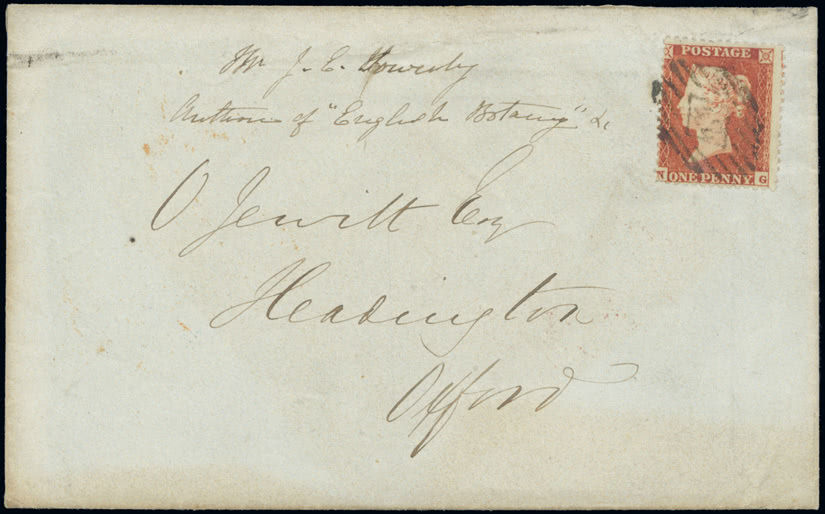 Mr J. E. Sowerby
Author of "English Botany" &c
O Jewitt Esq
Headington
Oxford
POSTAGE
ONE PENNY
N G